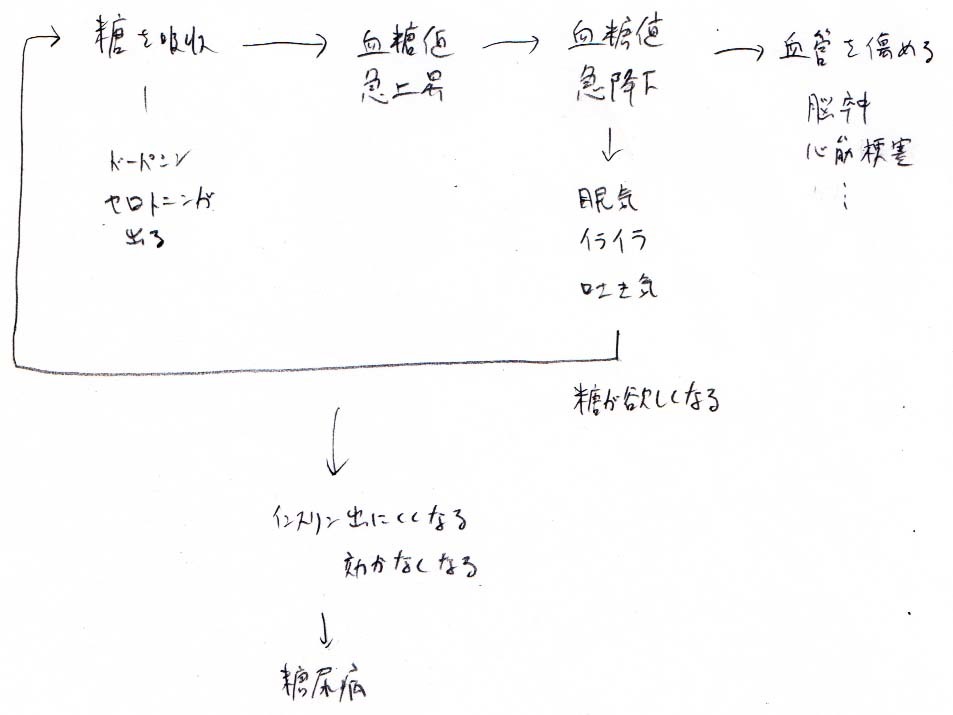 糖を吸収
血糖値
急上昇
血糖値
急降下
血管を傷める
脳卒中
心筋梗塞
⋮
ドーパミン
セロトニンが
出る
眠気
イライラ
吐き気
糖が欲しくなる
インスリン出にくくなる
効かなくなる
糖尿病